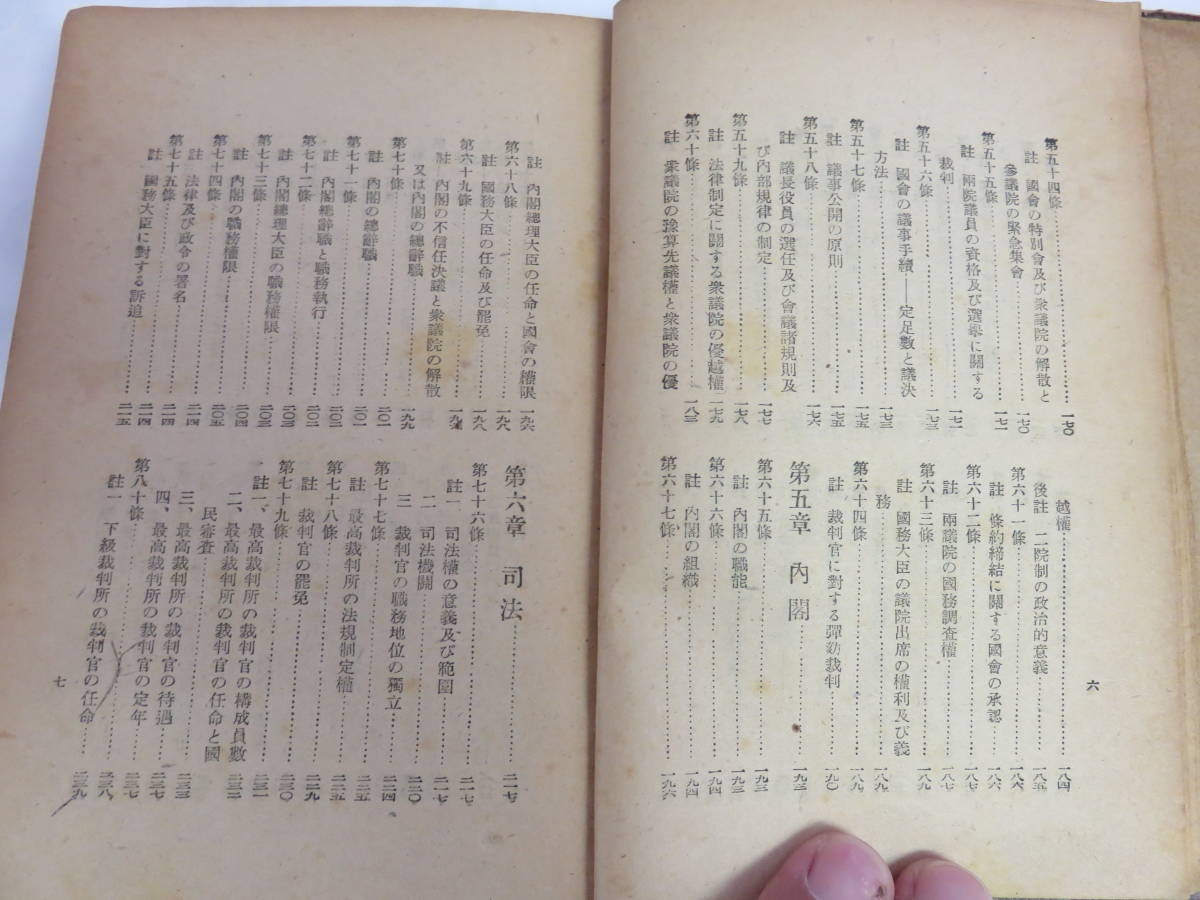 第五十四條……一七〇
註　國會の特別會及び衆議院の解散と
參議院の緊急集會……一七〇
第五十五條……一七二
註　兩院議員の資格及び選擧に關する
裁判……一七二
第五十六條……一七三
註　國會の議事手續——定足數と議決
方法……一七三
第五十七條……一七五
註　議事公開の原則……一七五
第五十八條……一七六
註　議長役員の選任及び會議諸規則及
び內部規律の制定……一七七
第五十九條……一七八
註　法律制定に關する衆議院の優越權……一七九
第六十條……一八三
註　衆議院の豫算先議權と衆議院の優
越權……一八四
後註　二院制の政治的意義……一八五
第六十一條……一八六
註　條約締結に關する國會の承認……一八六
第六十二條……一八七
註　兩議院の國務調査權……一八七
第六十三條……一八九
註　國務大臣の議院出席の權利及び義
務……一八九
第六十四條……一八九
註　裁判官に對する彈劾裁判……一九〇
第五章　內閣……一九三
第六十五條……一九三
註　內閣の職能……一九三
第六十六條……一九四
註　內閣の組織……一九四
第六十七條……一九六
六
註　內閣總理大臣の任命と國會の權限……一九六
第六十八條……一九八
註　國務大臣の任命及び罷免……一九八
第六十九條……一九九
註　內閣の不信任決議と衆議院の解散
又は內閣の總辭職……一九九
第七十條……二〇一
註　內閣の總辭職……二〇一
第七十一條……二〇二
註　內閣總辭職と職務執行……二〇二
第七十二條……二〇二
註　內閣總理大臣の職務權限……二〇三
第七十三條……二〇三
註　內閣の職務權限……二〇四
第七十四條……二〇五
註　法律及び政令の署名……二一四
第七十五條……二一四
註　國務大臣に對する訴追……二一五
第六章　司法……二一七
第七十六條……二一七
註一　司法權の意義及び範圍……二一七
二　司法機關……二二〇
三　裁判官の職務地位の獨立……二二四
第七十七條……二二五
註　最高裁判所の法規制定權……二二五
第七十八條……二二九
註　裁判官の罷免……二二九
第七十九條……二三〇
註一、最高裁判所の裁判官の構成員數……二三一
二、最高裁判所の裁判官の任命と國
民審査……二三二
三、最高裁判所の裁判官の待遇……二三三
四、最高裁判所の裁判官の定年……二三七
第八十條……二三七
註一　下級裁判所の裁判官の任命……二三八
七